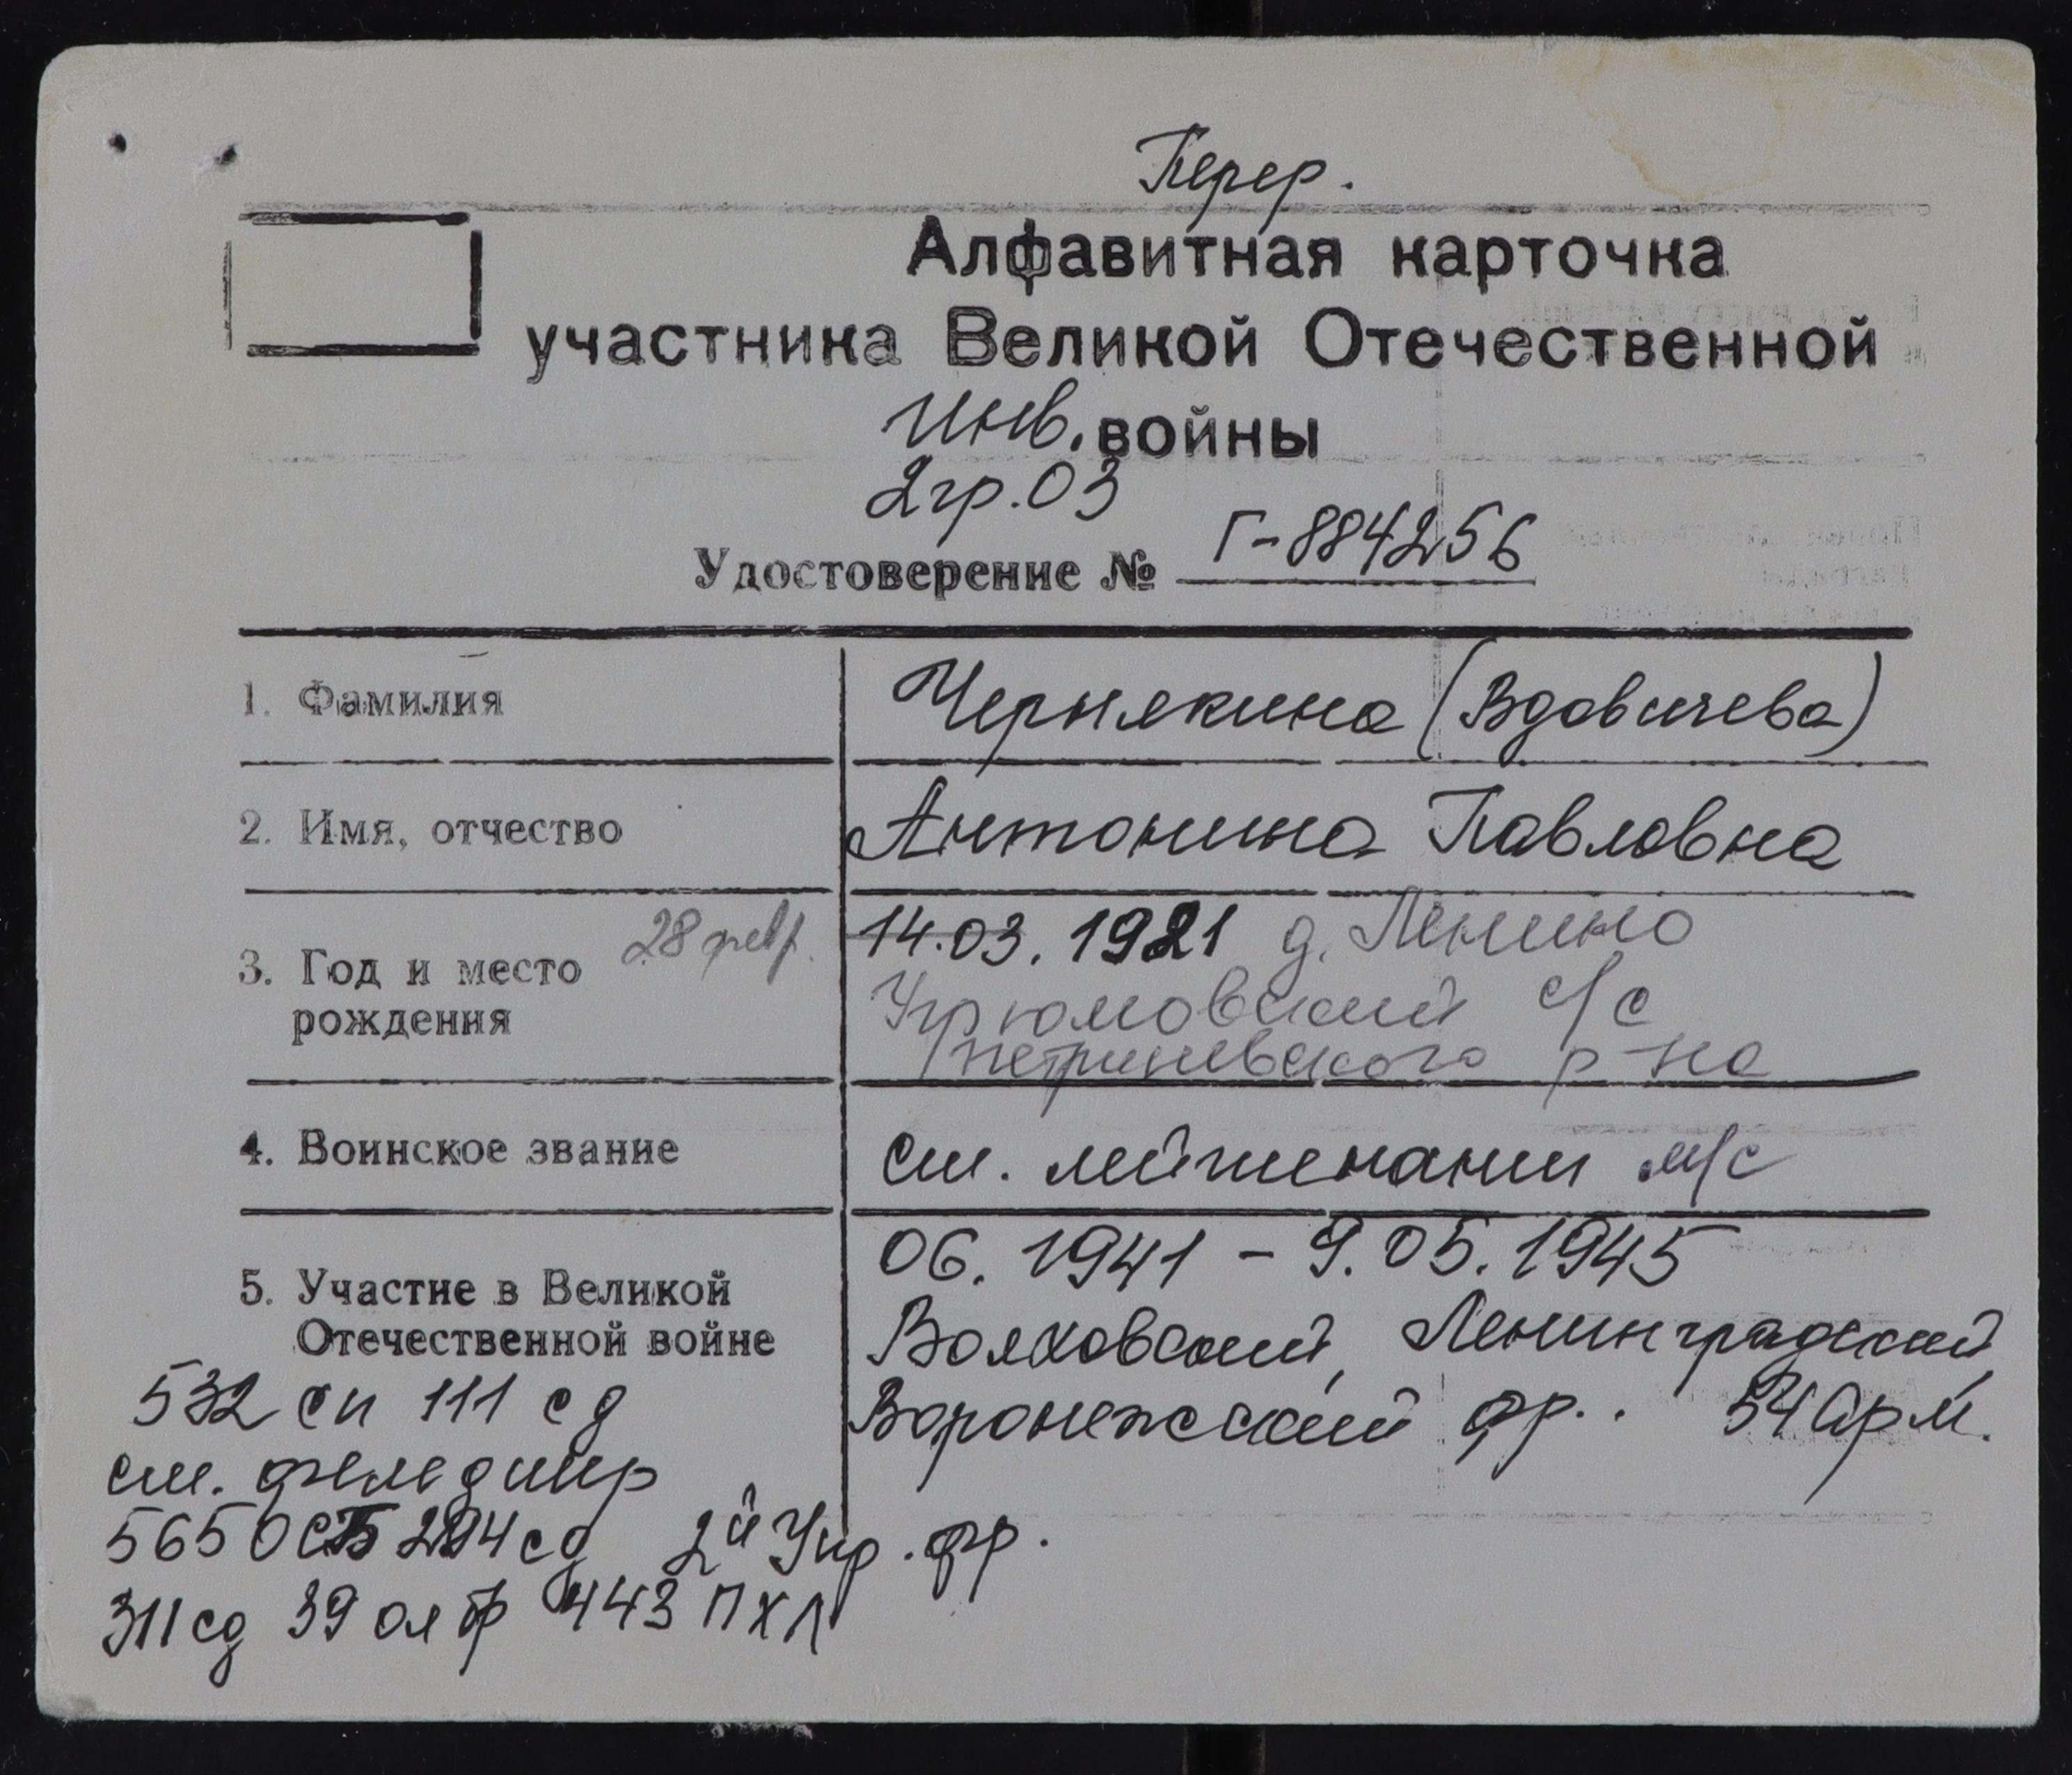 Перер.
Алфавитная карточка
участника Великой Отечественной
инв. войны
2гр. 03
Удостоверение № Г-884256
1. Фамилия Чернякина (Вдовичева)
2. Имя, отчество Антонина Павловна
28 февр. 14.03.1921 д. Ленино
3. Год и место рождения Угрюмовский с/с
Петриневского р-на
4. Воинское звание ст. лейтенант м/с
06.1941 - 9.05.1945
5. Участие в Великой
Отечественной войне Волховский, Ленинградский,
532 сп 111 сд Воронежский фр.. 54 Арм.
ст. фельдшер
565 294 сд 2й Укр. фр.
311 сд 39 443 ПХЛ